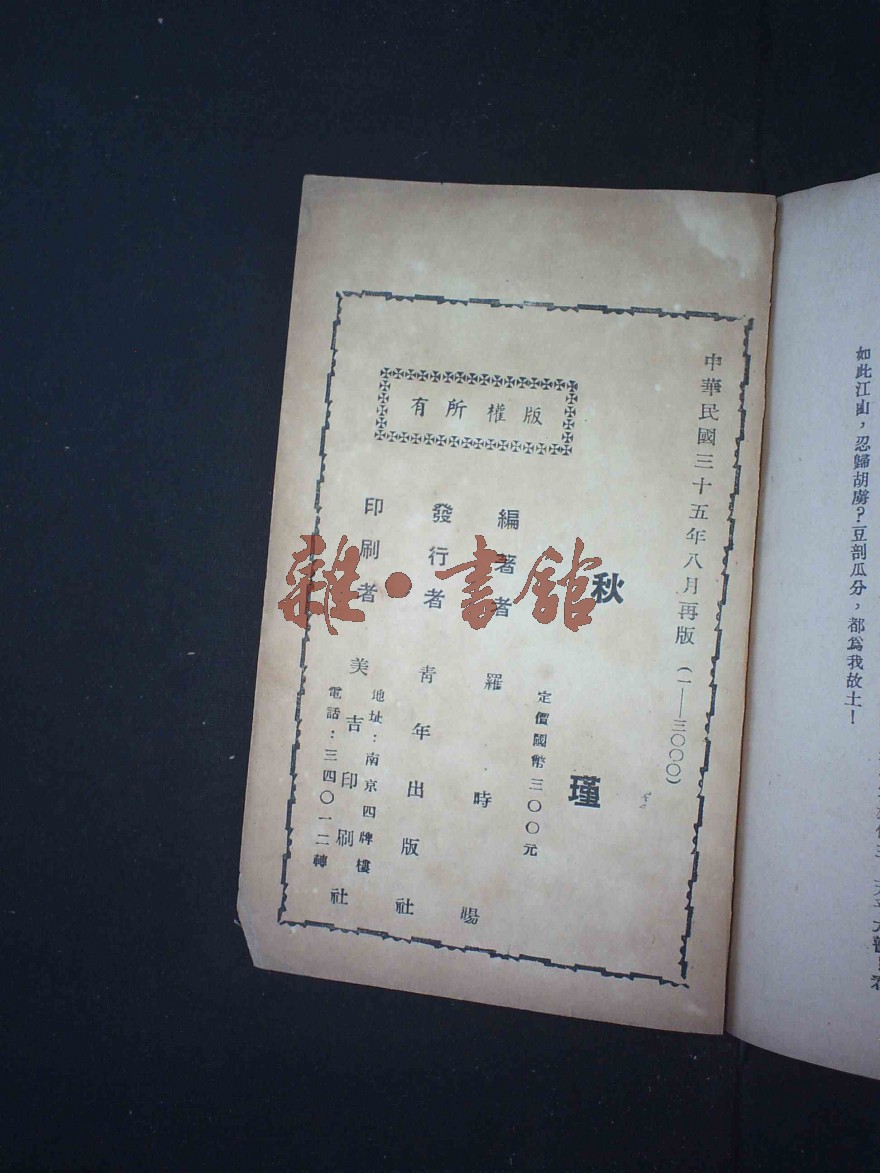 中華民國三十五年八月再版(一——三〇〇〇)
秋瑾
定價國幣三〇〇元
編著者 羅時暘
發行者 青年出版社
印刷者 美吉印刷社
地址:南京四牌樓
電話:三四〇一二轉
版權所有
如此江山,忍歸胡虜?豆剖瓜分,都爲我故土!
雜·書館